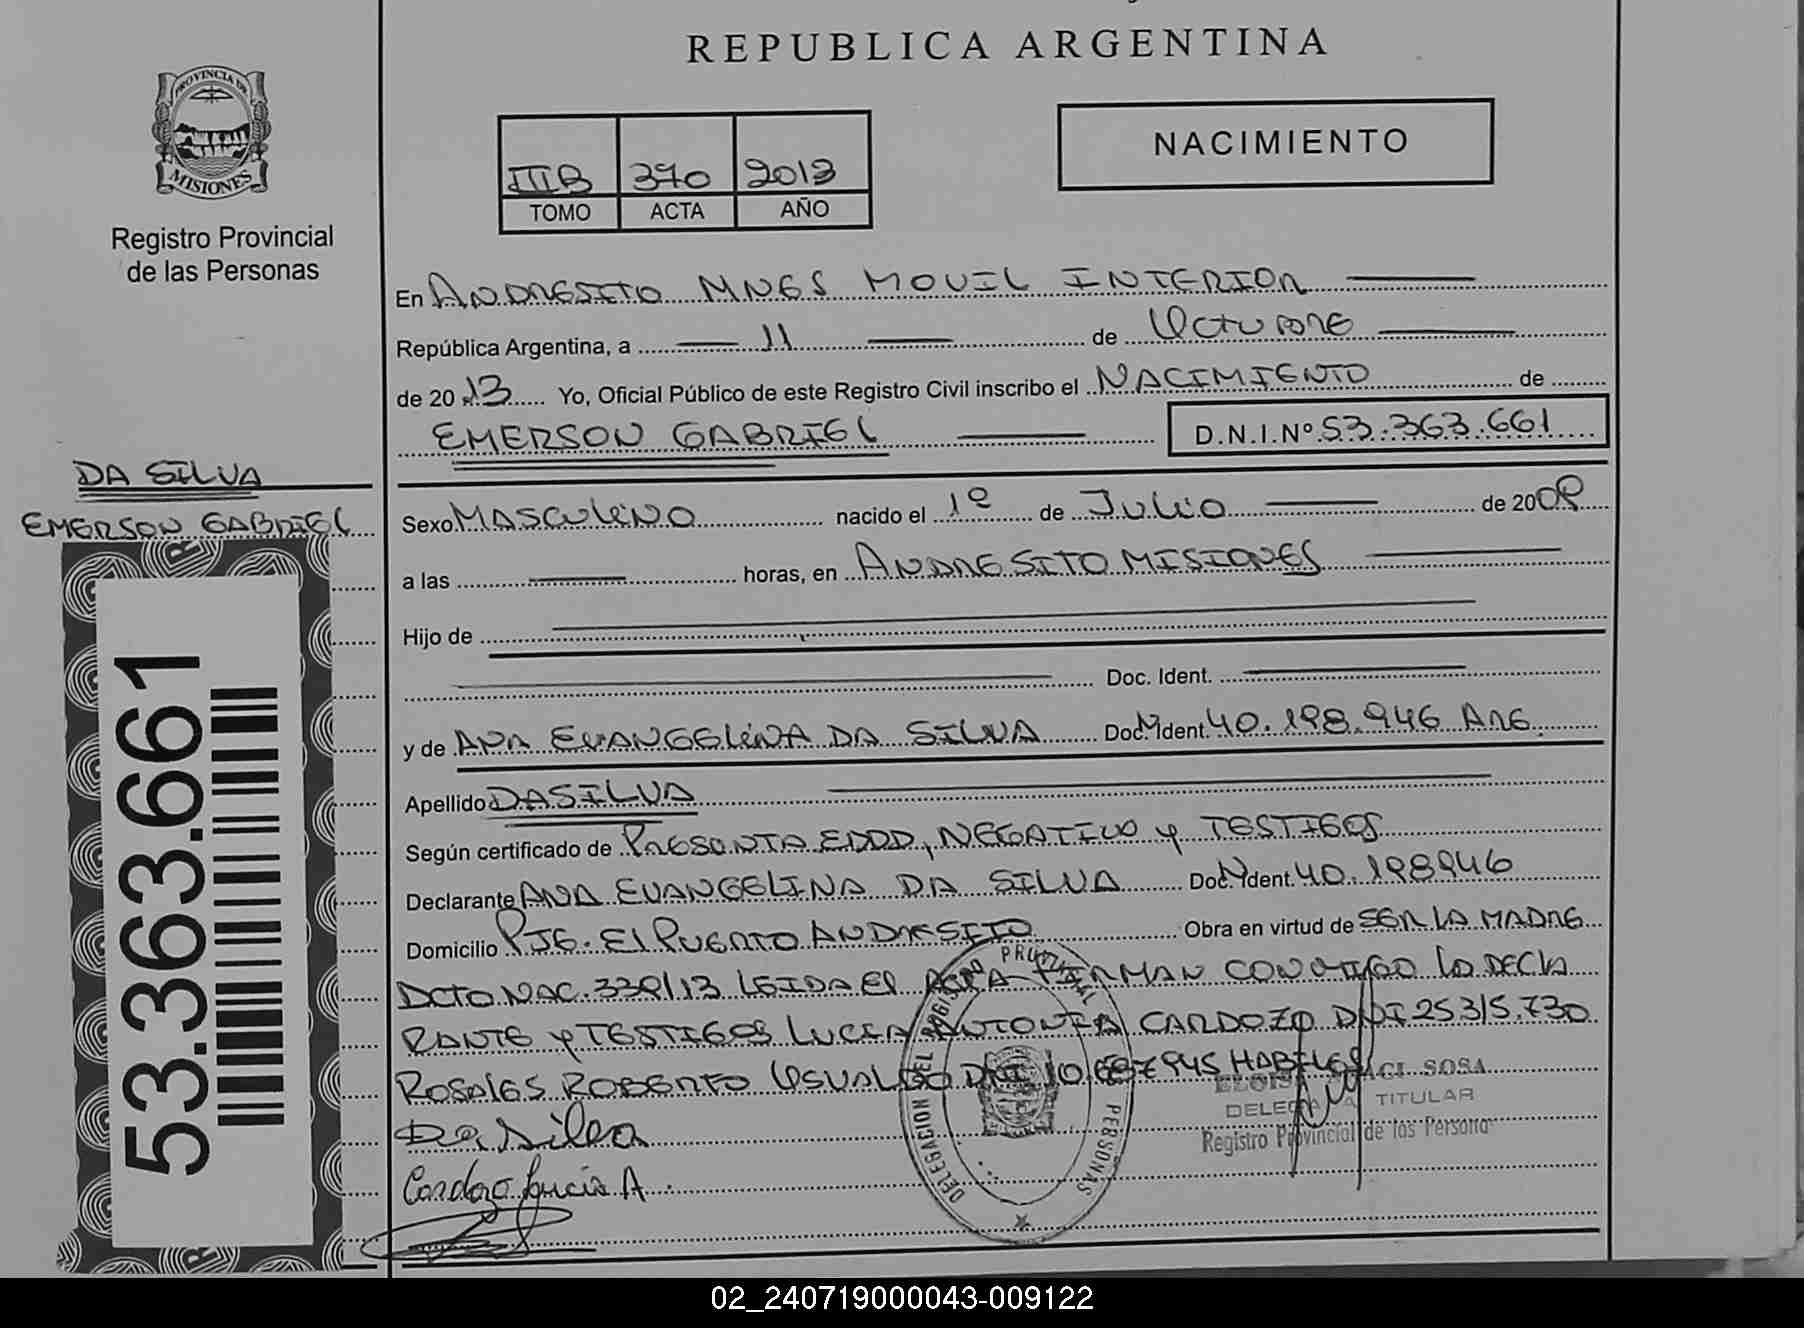 REPUBLICA ARGENTINA
PROVINCIA DE
MISIONES
Registro Provincial
de las Personas
NACIMIENTO
IIIB 370 2013
TOMO ACTA AÑO
En ANDRESITO MNES MOVIL INTERIOR
República Argentina, a 11 de Octubre
de 2013 Yo, Oficial Público de este Registro Civil inscribo el NACIMIENTO de
EMERSON GABRIEL D.N.I.Nº 53.363.661
DA SILVA
EMERSON GABRIEL
53.363.661
Sexo MASCULINO nacido el 1º de Julio de 2009
a las horas, en ANDRESITO MISIONES
Hijo de
Doc. Ident.
y de ANA EVANGELINA DA SILVA Doc. Ident. 40.198.946 ARG
Apellido DA SILVA
Según certificado de PRESENTA EDDD, NEGATIVO y TESTIGOS
Declarante ANA EVANGELINA DA SILVA Doc. Ident. 40.198946
Domicilio PJE. El PUERTO ANDRESITO Obra en virtud de SER LA MADRE
DCTO NAC. 339/13 LEIDA El ACTA FIRMAN CONMIGO LA DECLA
RANTE y TESTIGOS LUCIA ANTONIA CARDOZO DNI 25.315.730
ROSALES ROBERTO OSUALDO DNI 10.687945 HABILES
DELEGACION DEL REGISTRO PROVINCIAL PERSONAS
SOSA
DELEGADA TITULAR
Registro Provincial de las Personas
Da Silva
Cardozo Lucia A.
02_240719000043-009122